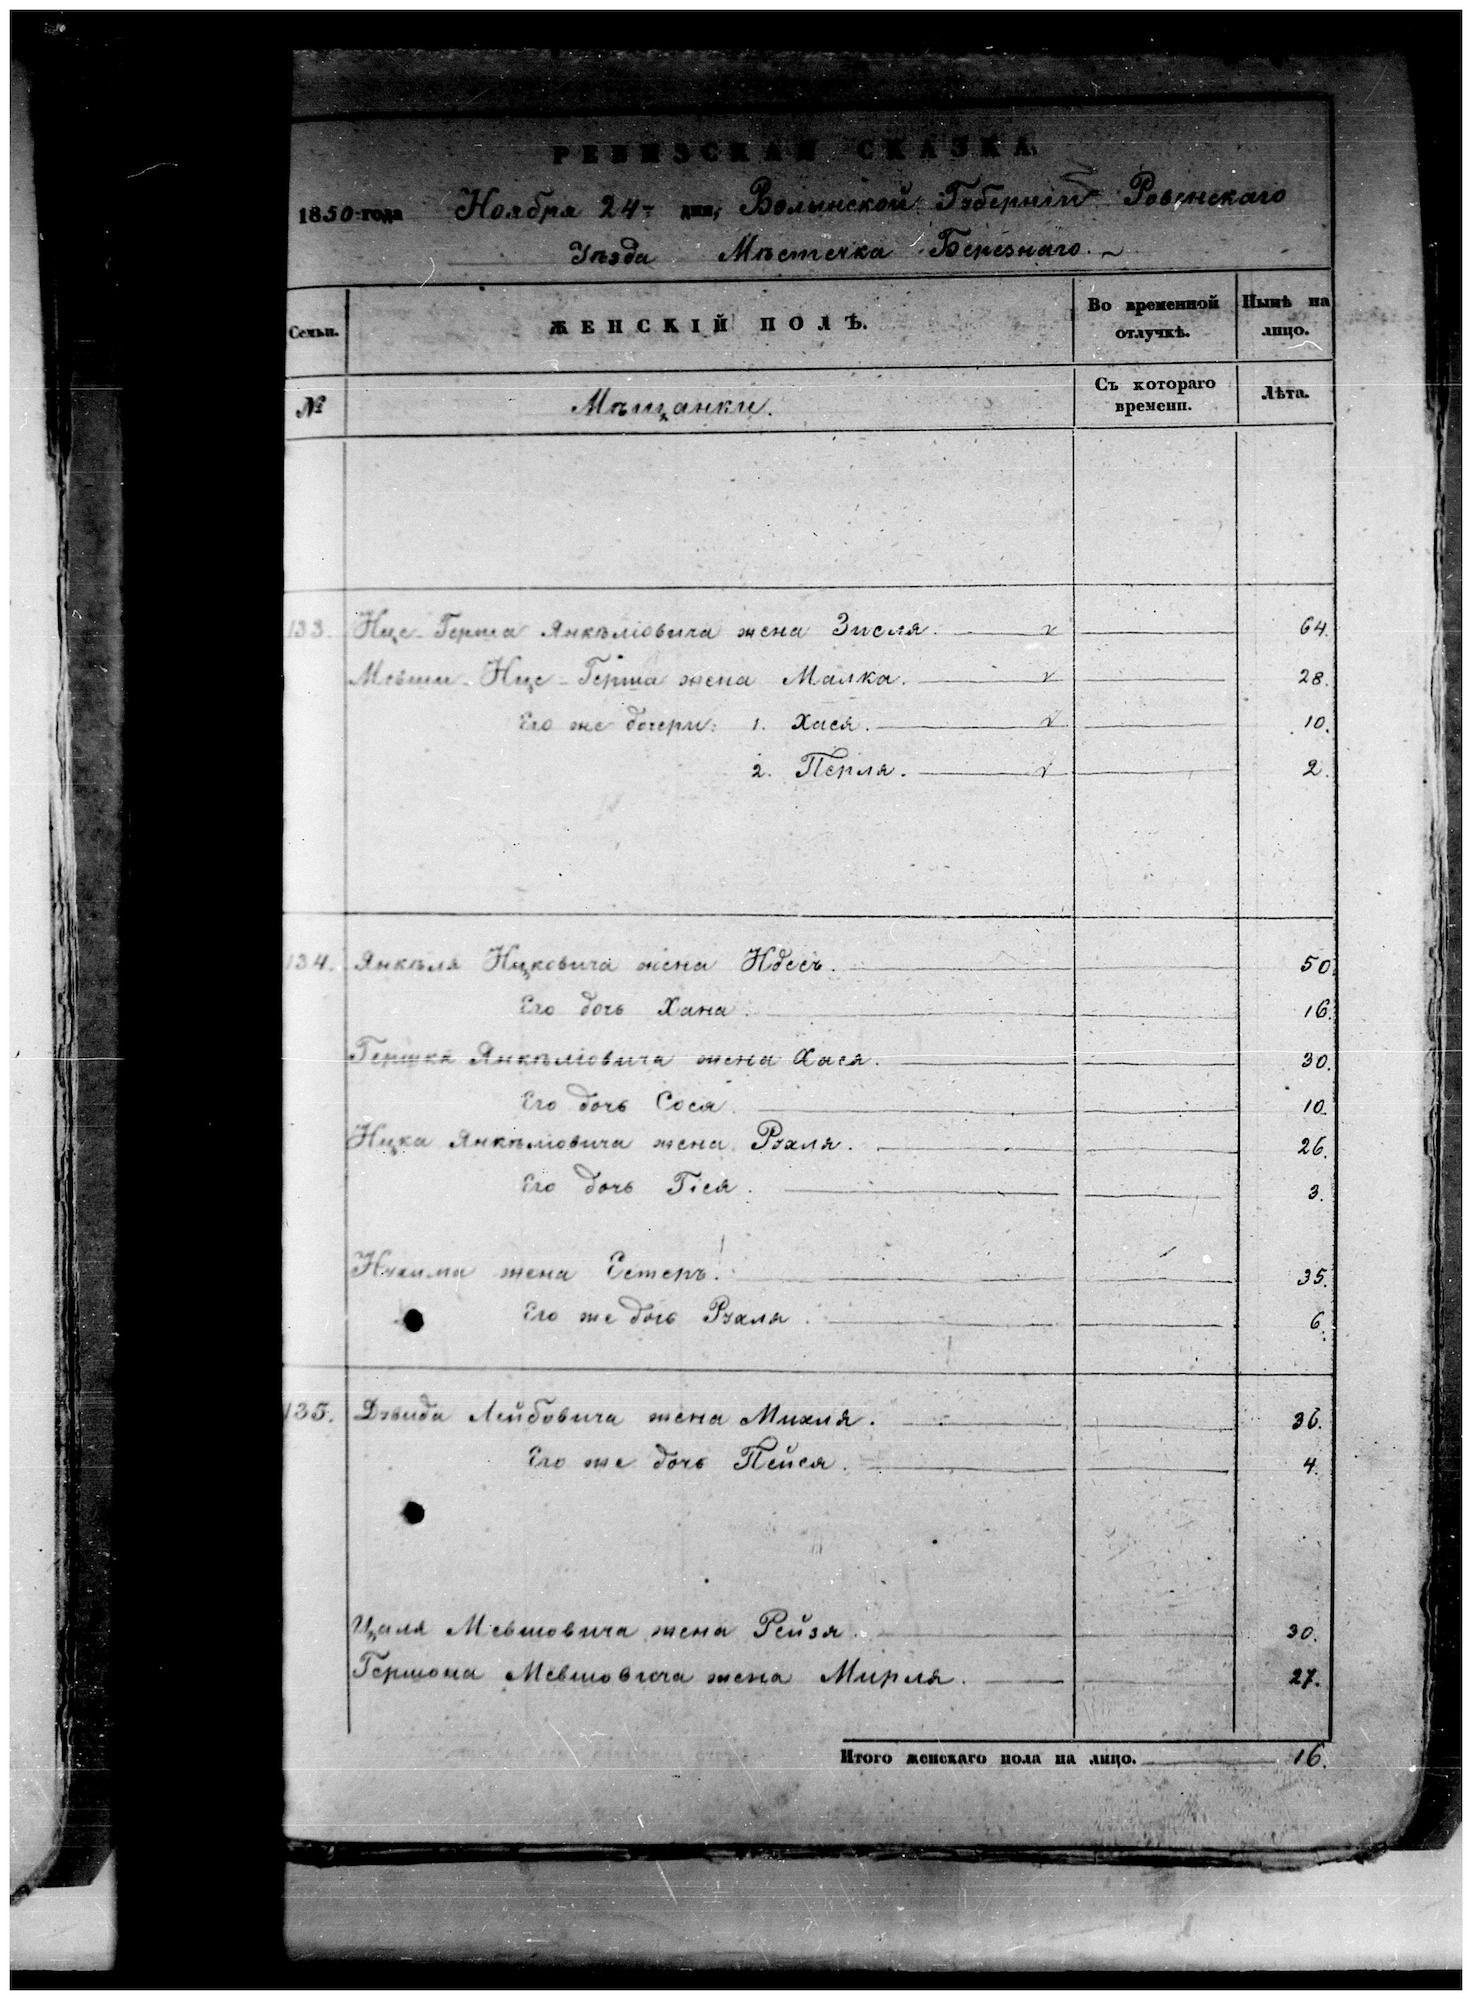 РЕВИЗСКАЯ СКАЗКА.
1850 года Ноября 24 дня, Волынской Губерніи Ровенскаго
Уѣзда Мѣстечка Березнаго.
Семьи. ЖЕНСКІЙ ПОЛЪ. Во временной отлучкѣ. Нынѣ на лицо.
№ Мѣщанки. Съ котораго времени. Лѣта.
133. Ице-Герша Янкѣліовича жена Зисля. 64.
Мовши Ице-Герша жена Малка. 28.
Его же дочери: 1. Хася. 10.
2. Перля. 2.
134. Янкѣля Ицковича жена Идесъ. 50
Его дочь Хана. 16.
Гершка Янкѣліовича жена Хася. 30.
Его дочь Сося. 10.
Ицка Янкѣліовича жена Рухля. 26.
Его дочь Гіся. 3.
Нухима жена Естеръ. 35.
Его же дочь Рухля. 6.
135. Дувида Лейбовича жена Михля. 36.
Его же дочь Пейся. 4.
Цаля Мевшовича жена Рейзя. 30.
Гершона Мевшовича жена Мирля. 27.
Итого женскаго пола на лицо. 16.